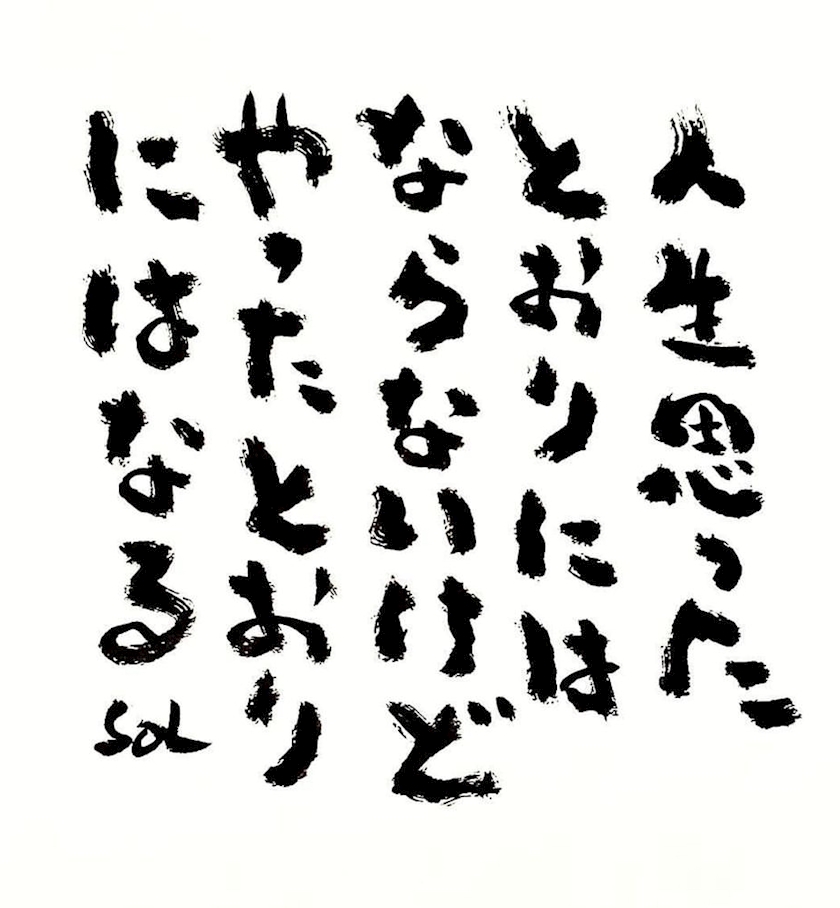 人生思った
とおりには
ならないけど
やったとおり
にはなる
SOL